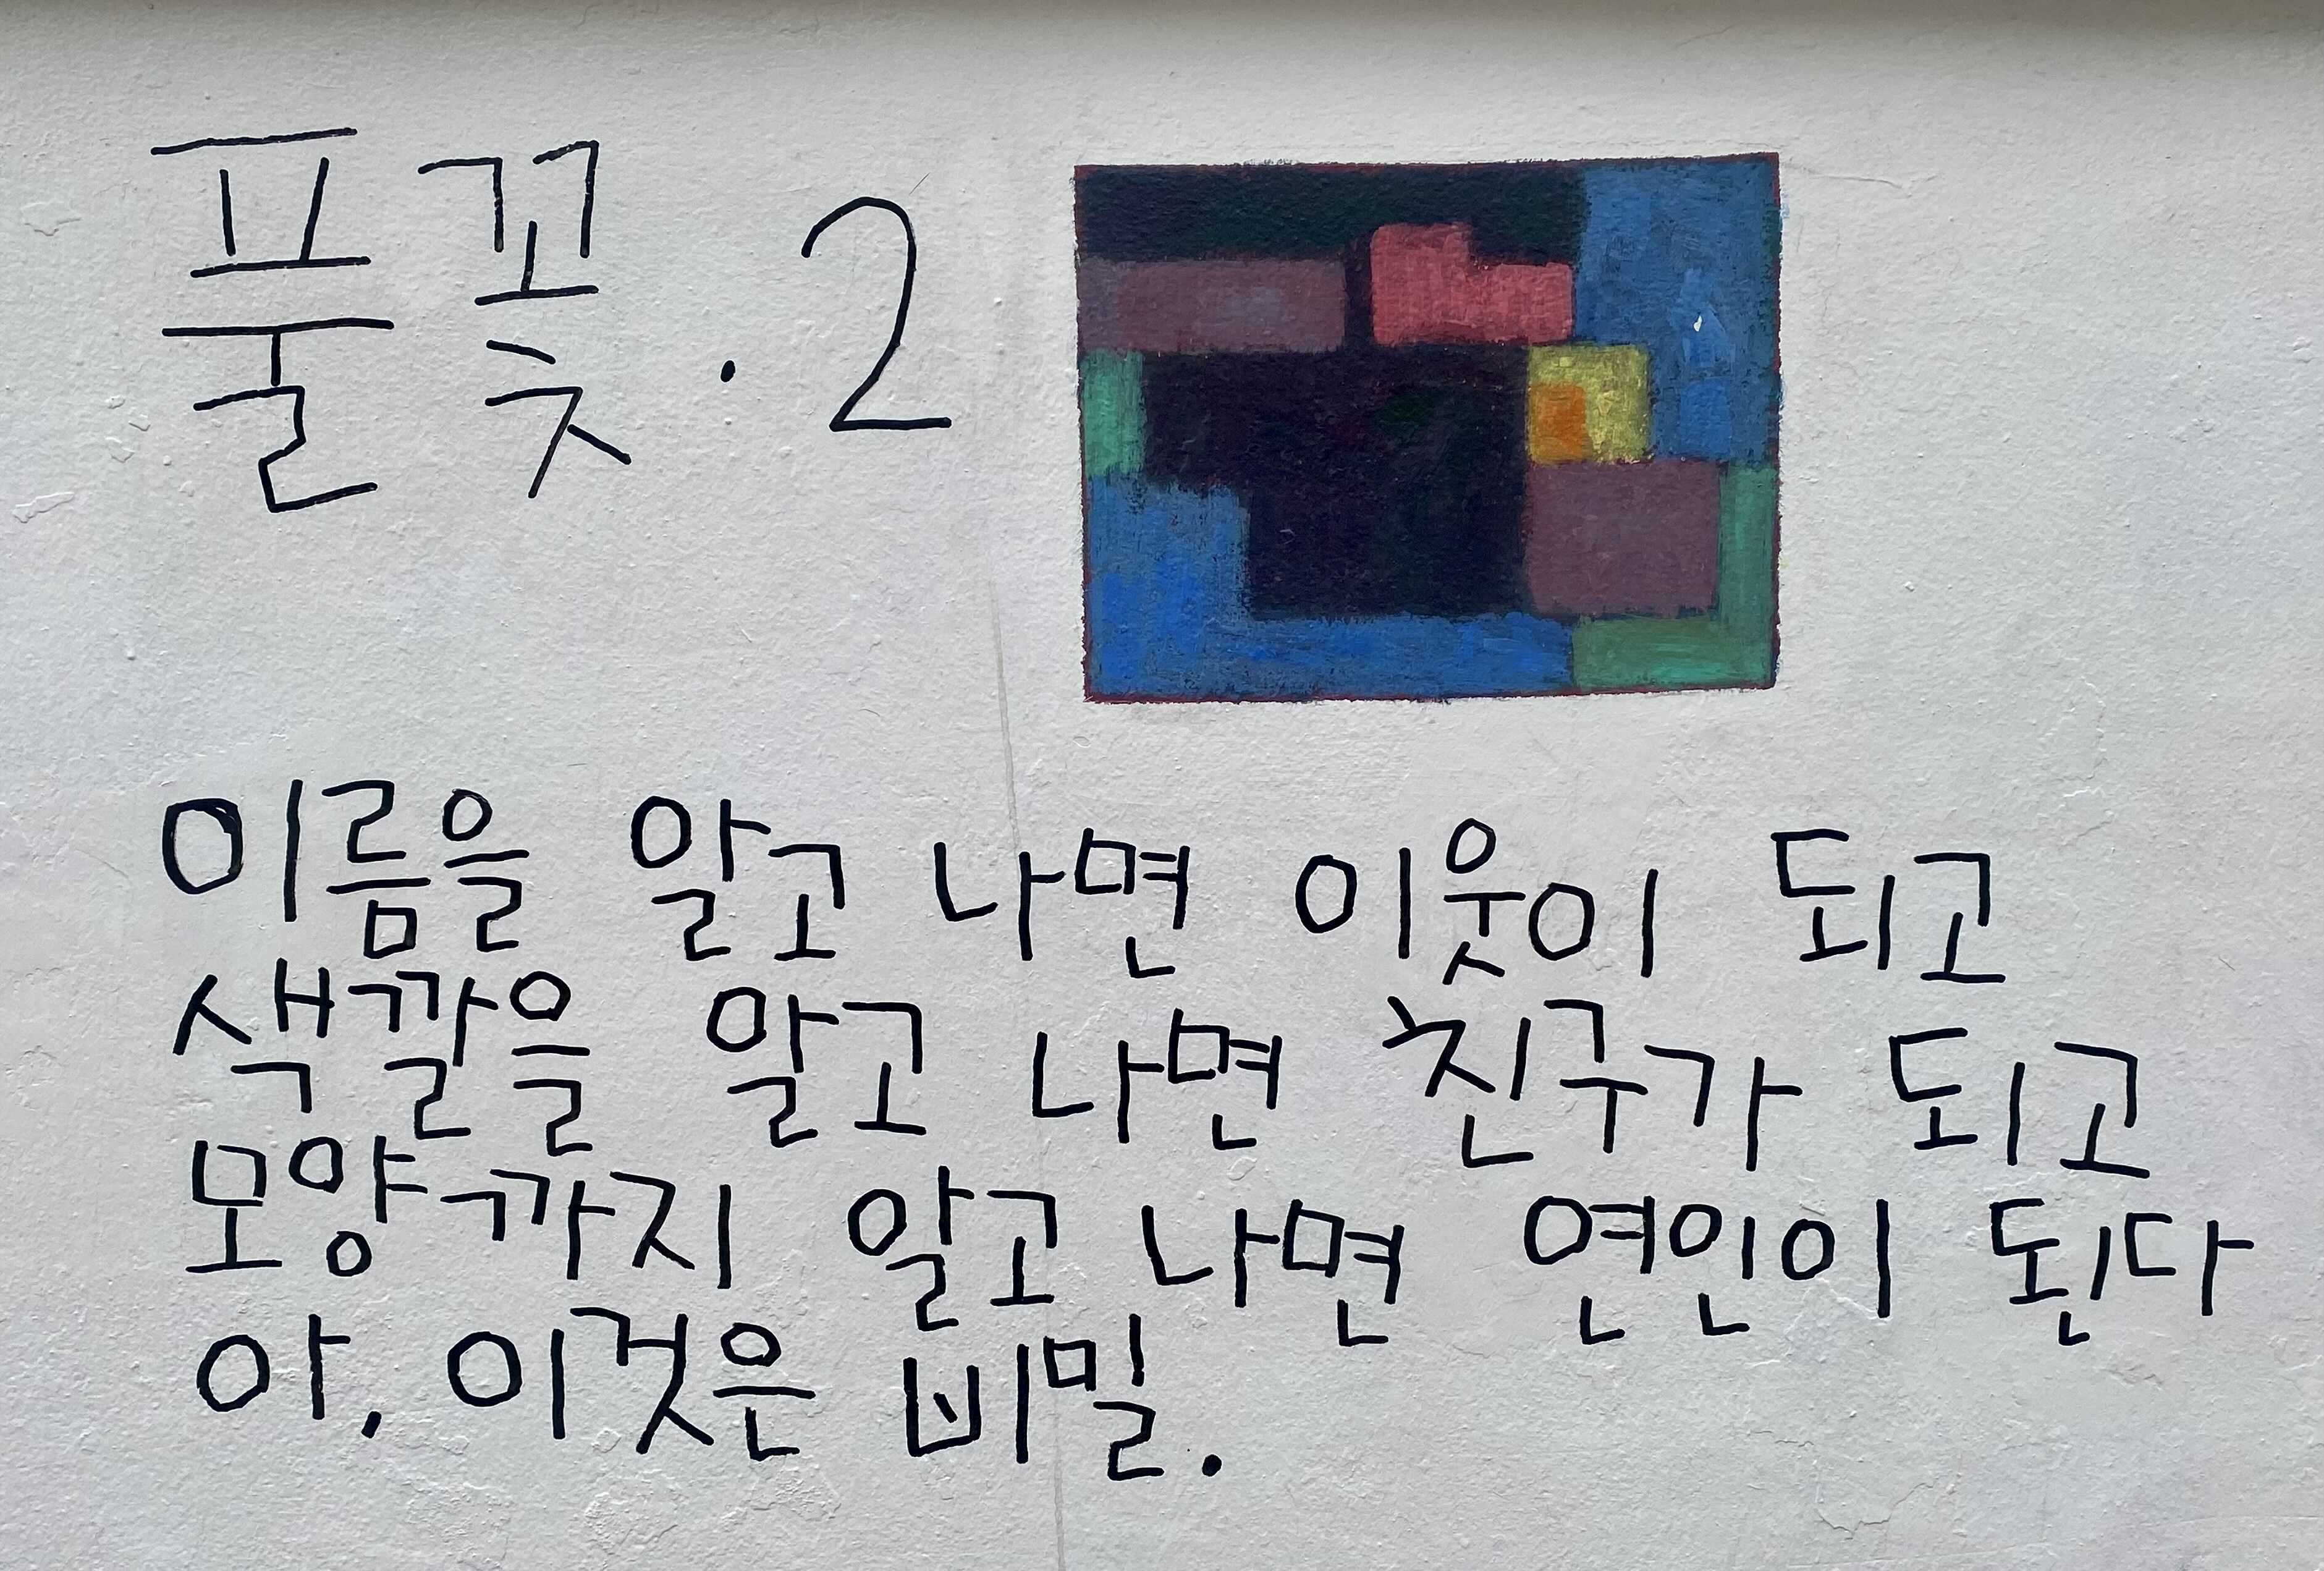 풀꽃.2
이름을 알고 나면 이웃이 되고
색깔을 알고 나면 친구가 되고
모양까지 알고 나면 연인이 된다
아, 이것은 비밀.